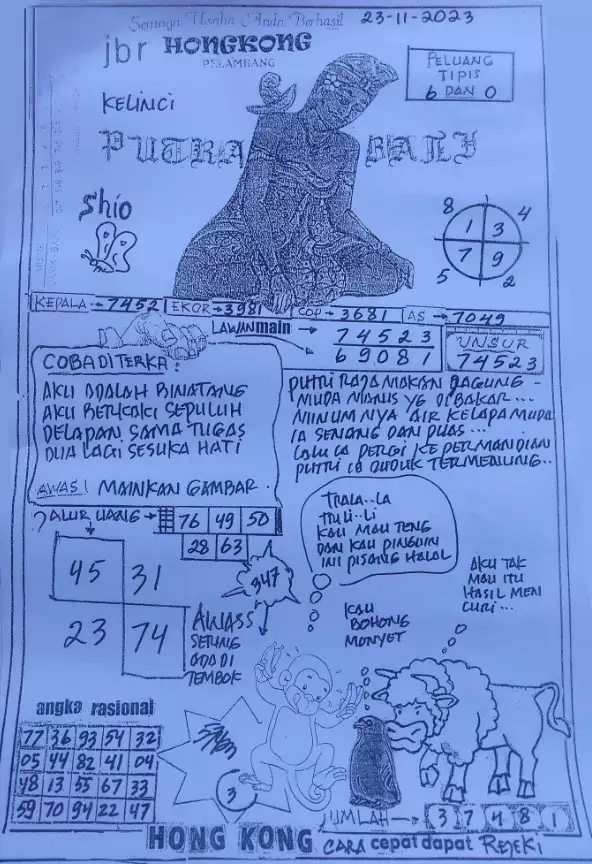 Semoga Usaha Anda Berhasil
23-11-2023
jbr HONGKONG
PELAMBANG
PELUANG
TIPIS
6 DAN 0
KELINCI
PUTRA BALI
Shio
8 4
1 3
7 9
5 2
KEPALA → 7452 EKOR → 3981 COP → 3681 AS → 7049
LAWAN main → 74523
69081
UNSUR
74523
COBA DITERKA:
AKU ADALAH BINATANG
AKU BERKAKI SEPULUH
DELAPAN SAMA TUGAS
DUA LAGI SESUKA HATI
AWAS! MAINKAN GAMBAR.
PUTRI RAJA MAKAN JAGUNG -
MUDA MANIS YG DIBAKAR...
MINUMNYA AIR KELAPA MUDA
IA SENANG DAN PUAS...
LALU IA PERGI KE PERMANDIAN
PUTRI IA DUDUK TERMENUNG..
JALUR UANG → 76 49 50
28 63
347
45 31
23 74
AWASS
SERING
ADA DI
TEMBOK
TRALA..LA
TRULI..LI
KAU MAU TENG
DAN KAU PINGUIN
INI PISANG HALAL
AKU TAK
MAU ITU
HASIL MEN
CURI...
KAU
BOHONG
MONYET
angka rasional
77 36 93 54 32
05 44 82 41 04
48 13 55 67 33
59 70 94 22 47
3
JUMLAH → 3 7 4 8 1
HONG KONG CARA cepat dapat REJEKI